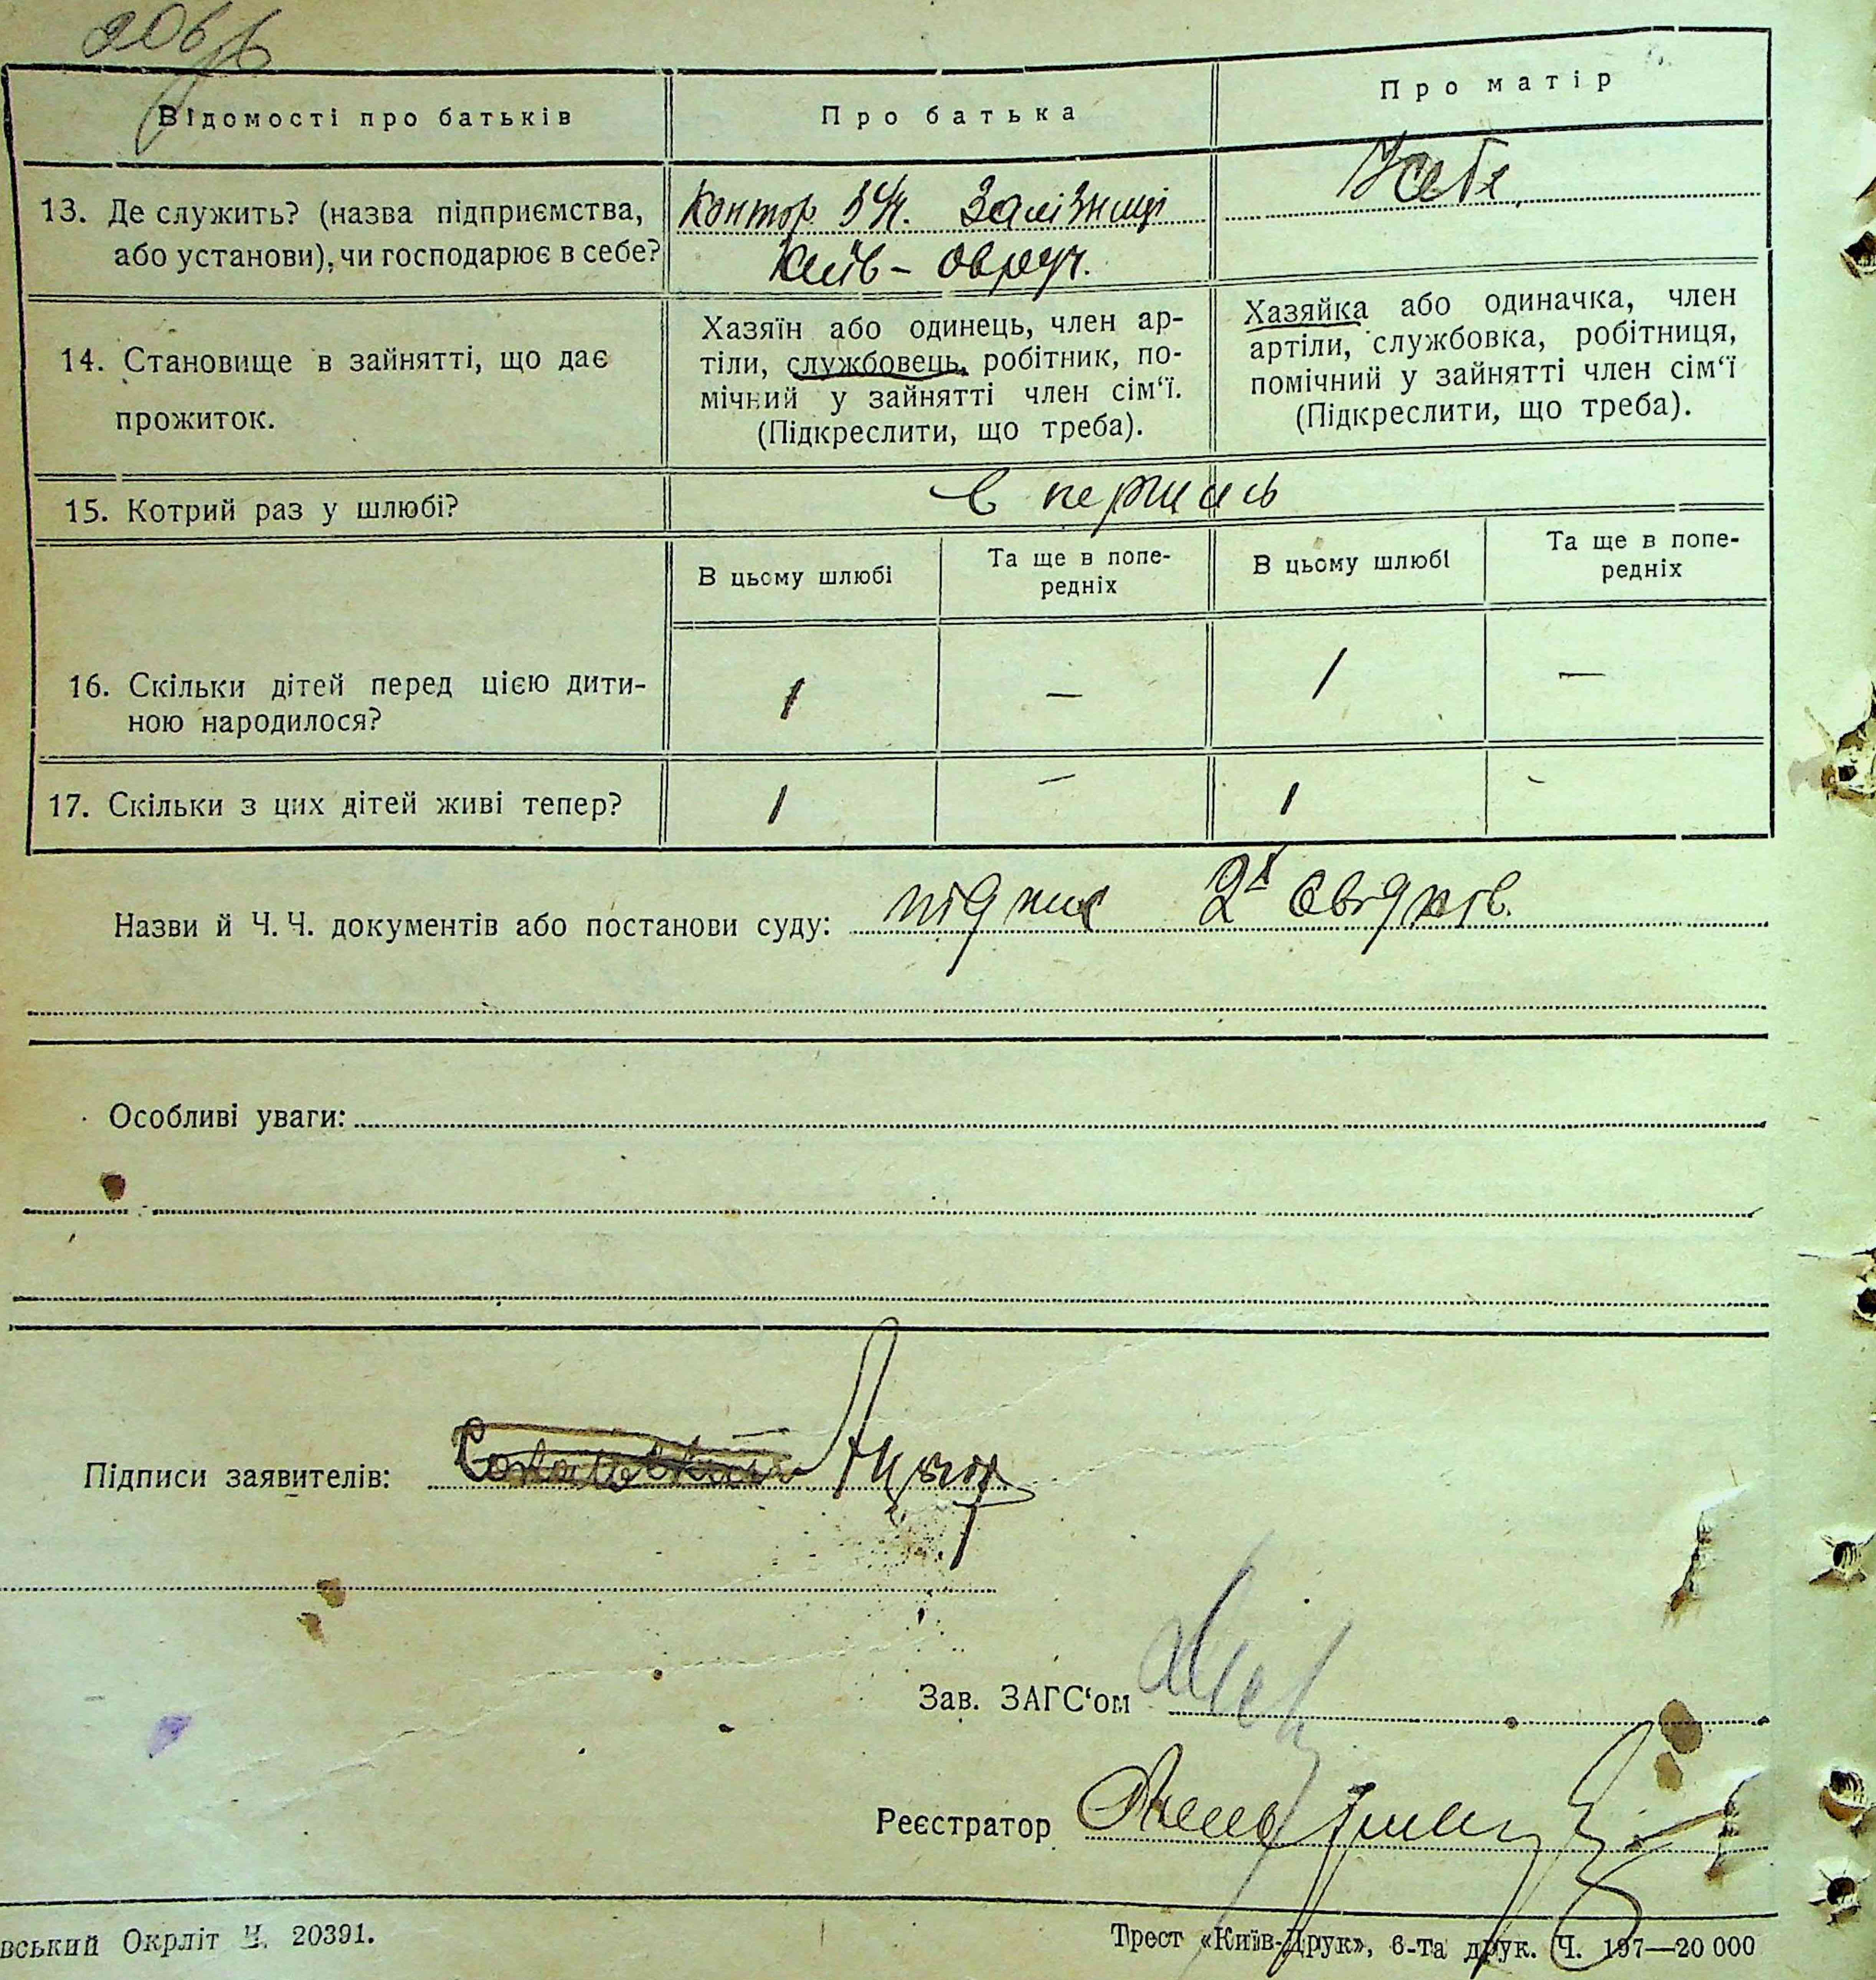 Відомості про батьків
Про батька
Про матір
13. Де служить? (назва підприємства,
або установи), чи господарює в себе?
Контор Залізниці
Київ - Овруч.
У себе
14. Становище в зайнятті, що дає
прожиток.
Хазяїн або одинець, член ар-
тіли, службовець, робітник, по-
мічний у зайнятті член сім‘ї.
(Підкреслити, що треба).
Хазяйка або одиначка, член
артіли, службовка, робітниця,
помічний у зайнятті член сім‘ї
(Підкреслити, що треба).
15. Котрий раз у шлюбі?
в перший
В цьому шлюбі
Та ще в попе-
редніх
В цьому шлюбі
Та ще в попе-
редніх
16. Скільки дітей перед цією дити-
ною народилося?
1 — 1 —
17. Скільки з цих дітей живі тепер?
1 — 1 -
Назви й Ч. Ч. документів або постанови суду: підпис 2х свідків.
Особливі уваги:
Підписи заявителів:
Зав. ЗАГС‘ом
Реєстратор
вський Окрліт Ч. 20391.
Трест «Київ-Друк», 6-та друк. Ч. 197—20 000